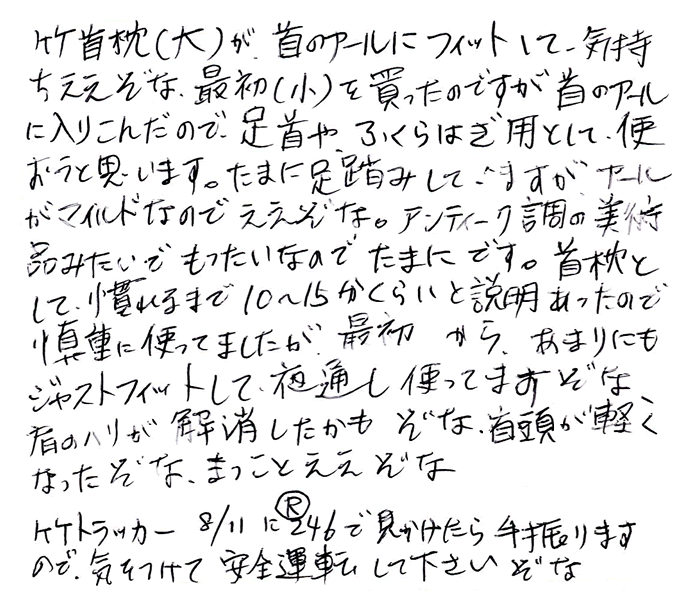 ケケ首枕(大)が、首のアールにフィットして、気持
ちええぞな、最初(小)を買ったのですが首のアール
に入りこんだので、足首や、ふくらはぎ用として、使
おうと思います。たまに足踏みして、ますが、アール
がマイルドなのでええぞな。アンティーク調の美術
品みたいでもったいないので たまにです。首枕と
して、慣れるまで10〜15分くらいと説明あったので
慎重に使ってましたが、最初から、あまりにも
ジャストフィットして、夜通し使ってますぞな
肩のハリが解消したかもぞな、首頭が軽く
なったぞな、まっことええぞな
ケケトラッカー 8/11にⓇ246で見かけたら手振ります
ので、気をつけて安全運転して下さいぞな